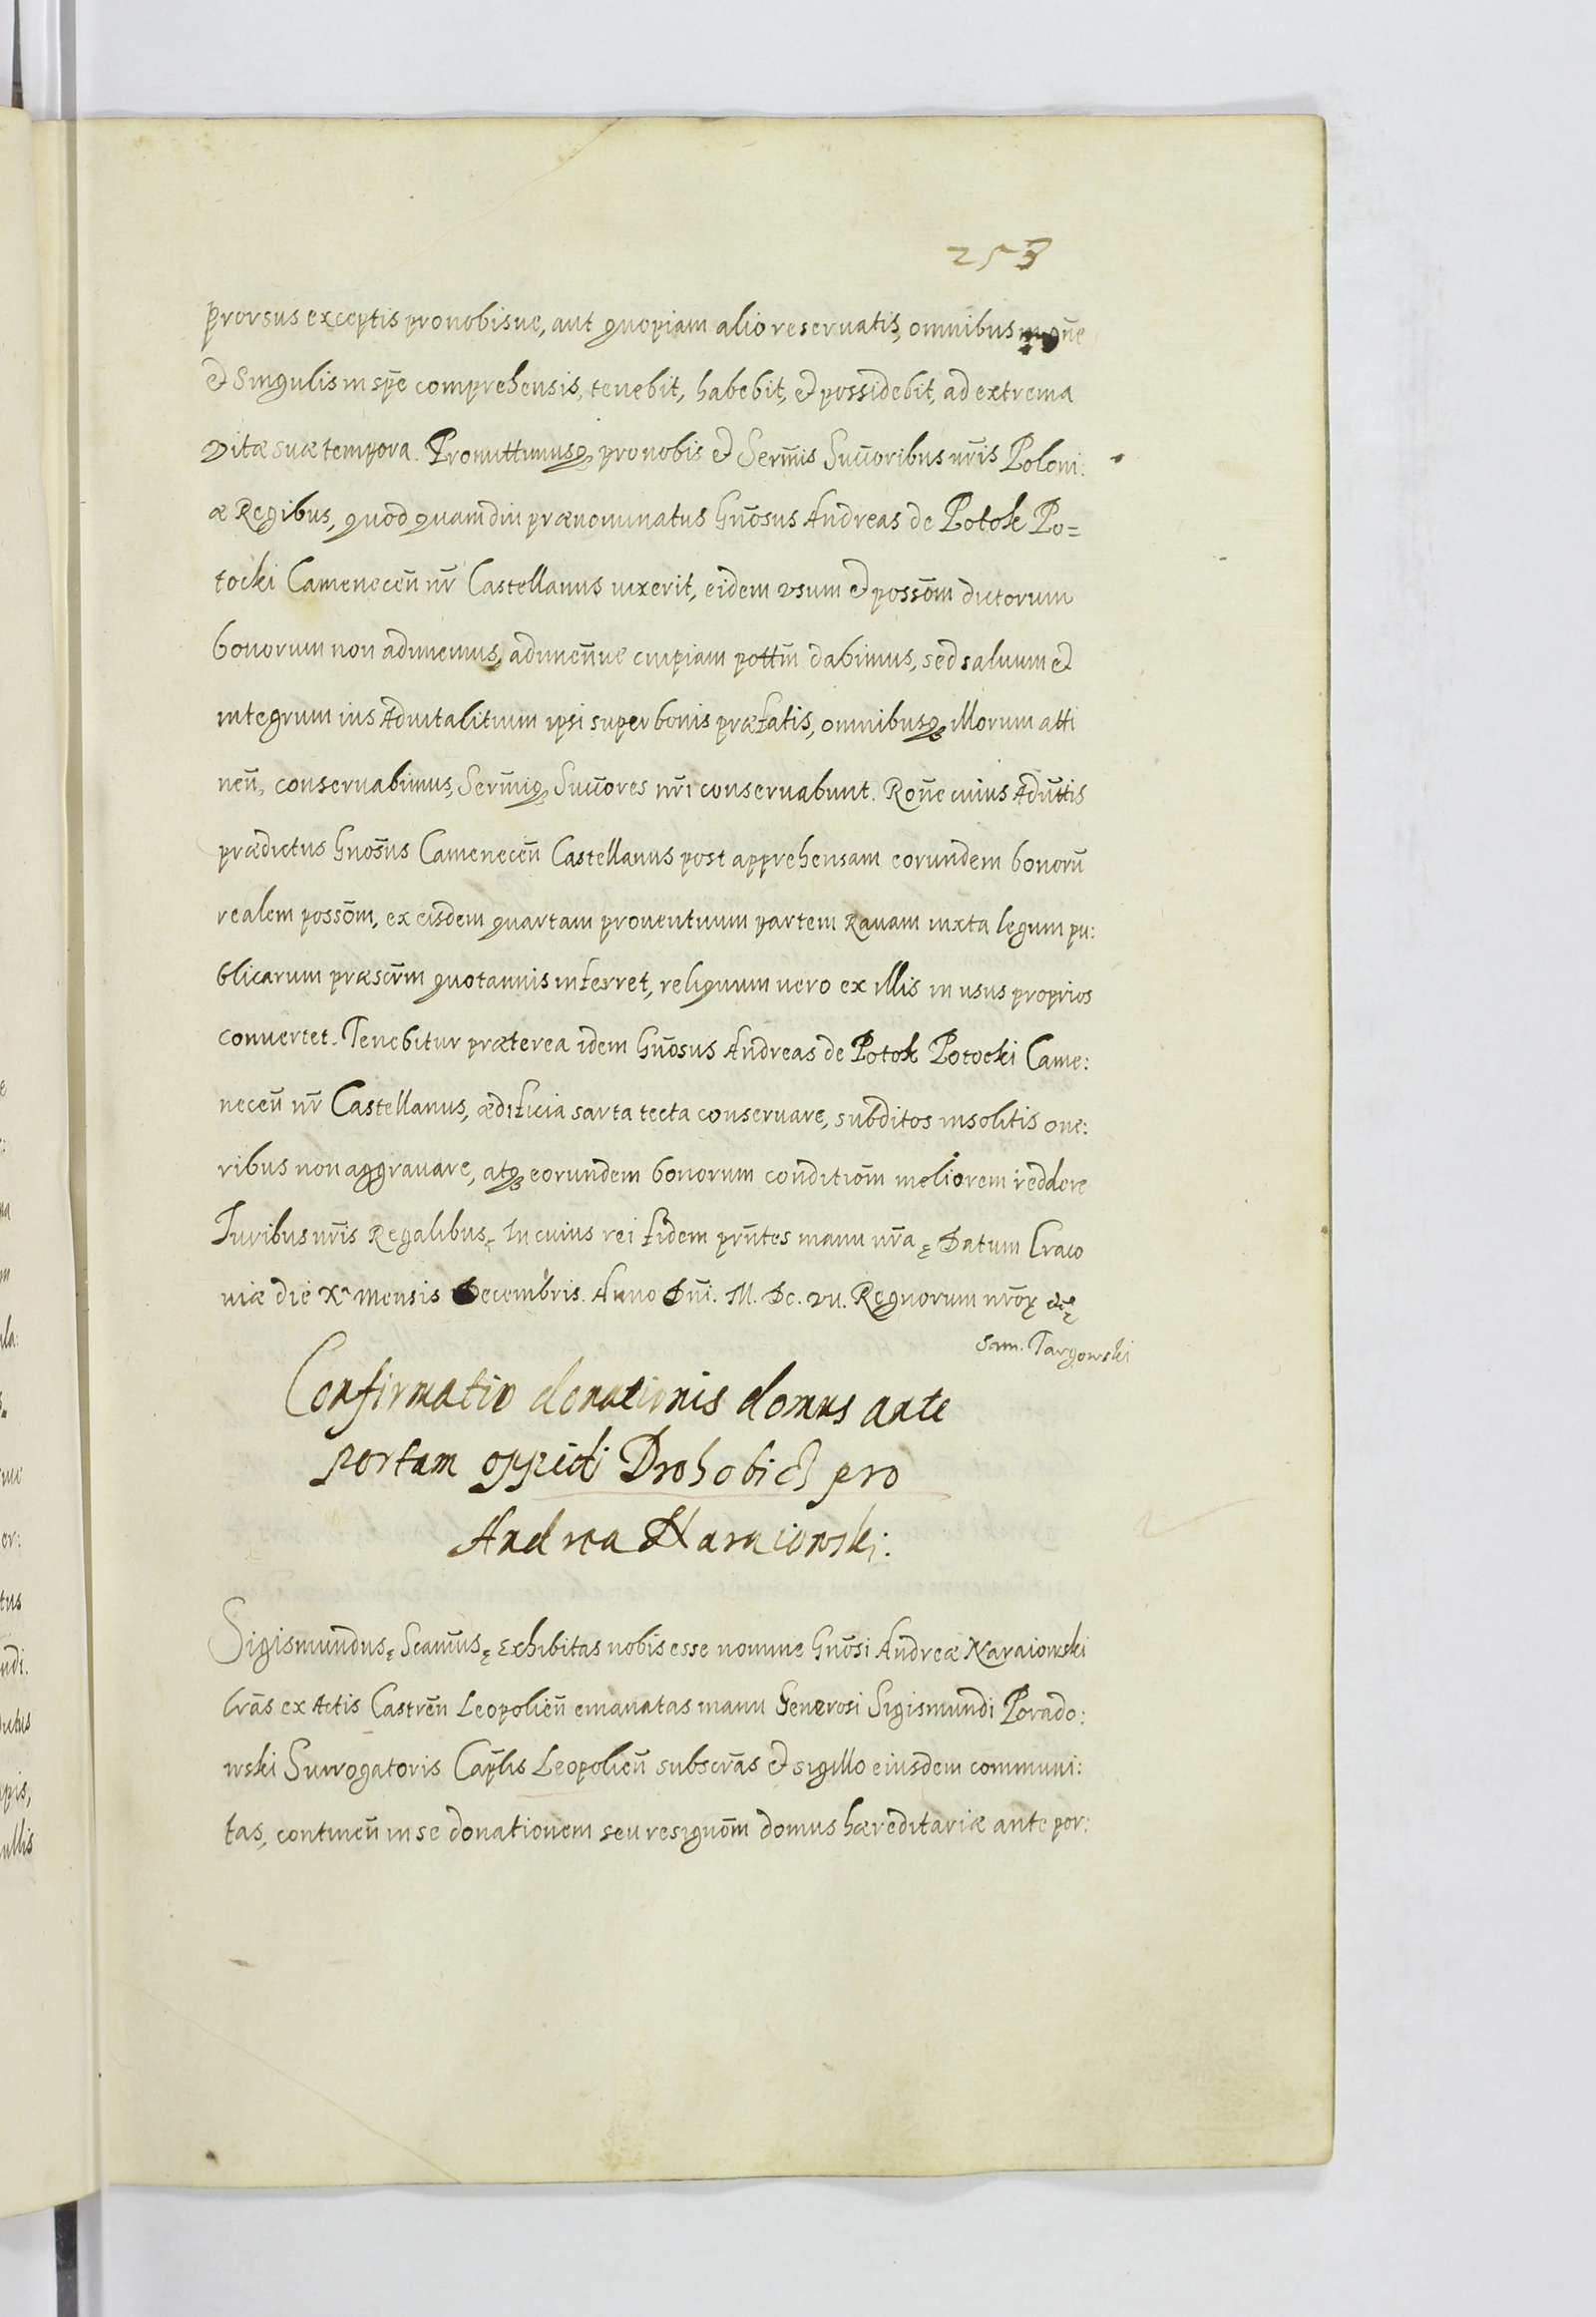 253
prorsus exceptis pro nobisue, aut quopiam alio reseruatis, omnibus in gñe
et Singulis in spē comprehensis, tenebit, habebit, et possidebit, ad extrema
vitæ suæ tempora. Promittimusq; pro nobis et Serm̃is Succ̃oribus nr̃is Poloni:
æ Regibus, quod quamdiu prænominatus Gñosus Andreas de Potok Po=
tocki Cameneceñ nr̃ Castellanus vixerit, eidem vsum et possõm dictorum
bonorum non adimemus, adimeñue cuipiam pottm̃ dabimus, sed saluum et
integrum ius Aduitalitium ipsi super bonis præfatis, omnibusq; illorum atti
neñ, conseruabimus, Serm̃iq; Succ̃ores nr̃i conseruabunt. Roñe cuius Adũttis
prædictus Gnos̃us Cameneceñ Castellanus post apprehensam eorundem bonorũ
realem possõm, ex eisdem quartam prouentuum partem Rauam iuxta legum pu:
blicarum præscr̃m quotannis inferret, reliquum uero ex illis in usus proprios
conuertet. Tenebitur præterea idem Gñosus Andreas de Potok Potocki Came:
neceñ nr̃ Castellanus, ædificia sarta tecta conseruare, subditos insolitis one:
ribus non aggrauare, atq; eorundem bonorum conditiõm meliorem reddere
Iuribus nr̃is Regalibus ę In cuius rei fidem prñtes manu nr̃a ę Datum Craco
uiæ die Xᵃ mensis Decembris. Anno Dñi. M. Dc. vii. Regnorum nr̃oꝝ etc ę
Sam. Targowski
Confirmatio donationis domus ante
portam oppidi Drohobicz pro
Andrea Naraiowski.
Sigismundus ę Sc̃amus ę Exhibitas nobis esse nomine Gñosi Andreæ Naraiowski
lrãs ex Actis Castreñ Leopolieñ emanatas manu Generosi Sigismundi Porado:
wski Surrogatoris Cap̃lis Leopolieñ subscrãs et sigillo eiusdem communi:
tas, contineñ in se donationem seu resignõm domus hæreditariæ ante por: